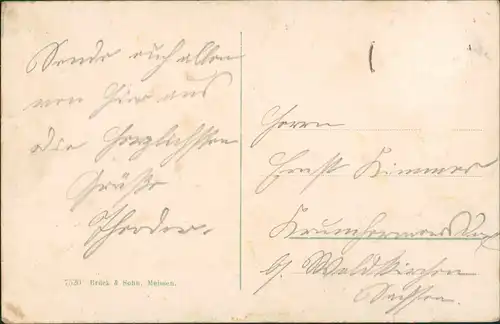 Sende euch allen
von hier aus
die herzlichsten
Grüße
Theodor.
Herrn
Ernst Kimmer
b/ Waldkirchen
Sachsen.
7520 Brück & Sohn, Meissen.